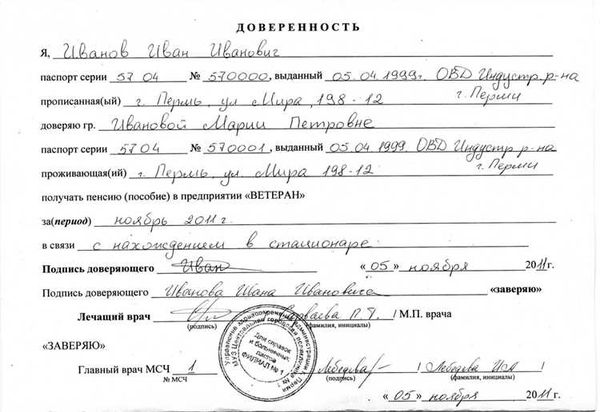 ДОВЕРЕННОСТЬ
Я, Иванов Иван Иванович
паспорт серии 57 04 № 570000, выданный 05.04.1999г. ОВД Индустр. р-на
г. Перми
прописанная(ый) г. Пермь, ул Мира, 198-12
доверяю гр. Ивановой Марии Петровне
паспорт серии 5704 № 570001, выданный 05.04.1999. ОВД Индустр р-на
г. Перми
проживающая(ий) г. Пермь, ул. Мира 198-12
получать пенсию (пособие) в предприятии «ВЕТЕРАН»
за(период) ноябрь 2011г.
в связи с нахождением в стационаре
Подпись доверяющего Иван «05» ноября 2011г.
Подпись доверяющего Иванова Ивана Ивановича «заверяю»
Лечащий врач / М.П. врача
(подпись) (фамилия, инициалы)
Для справок и больничных листов ФИЛИАЛ №1
«ЗАВЕРЯЮ»
Главный врач МСЧ 1 Лебедева Лебедева
№ МСЧ (подпись) (фамилия, инициалы)
«05» ноября 2011г.